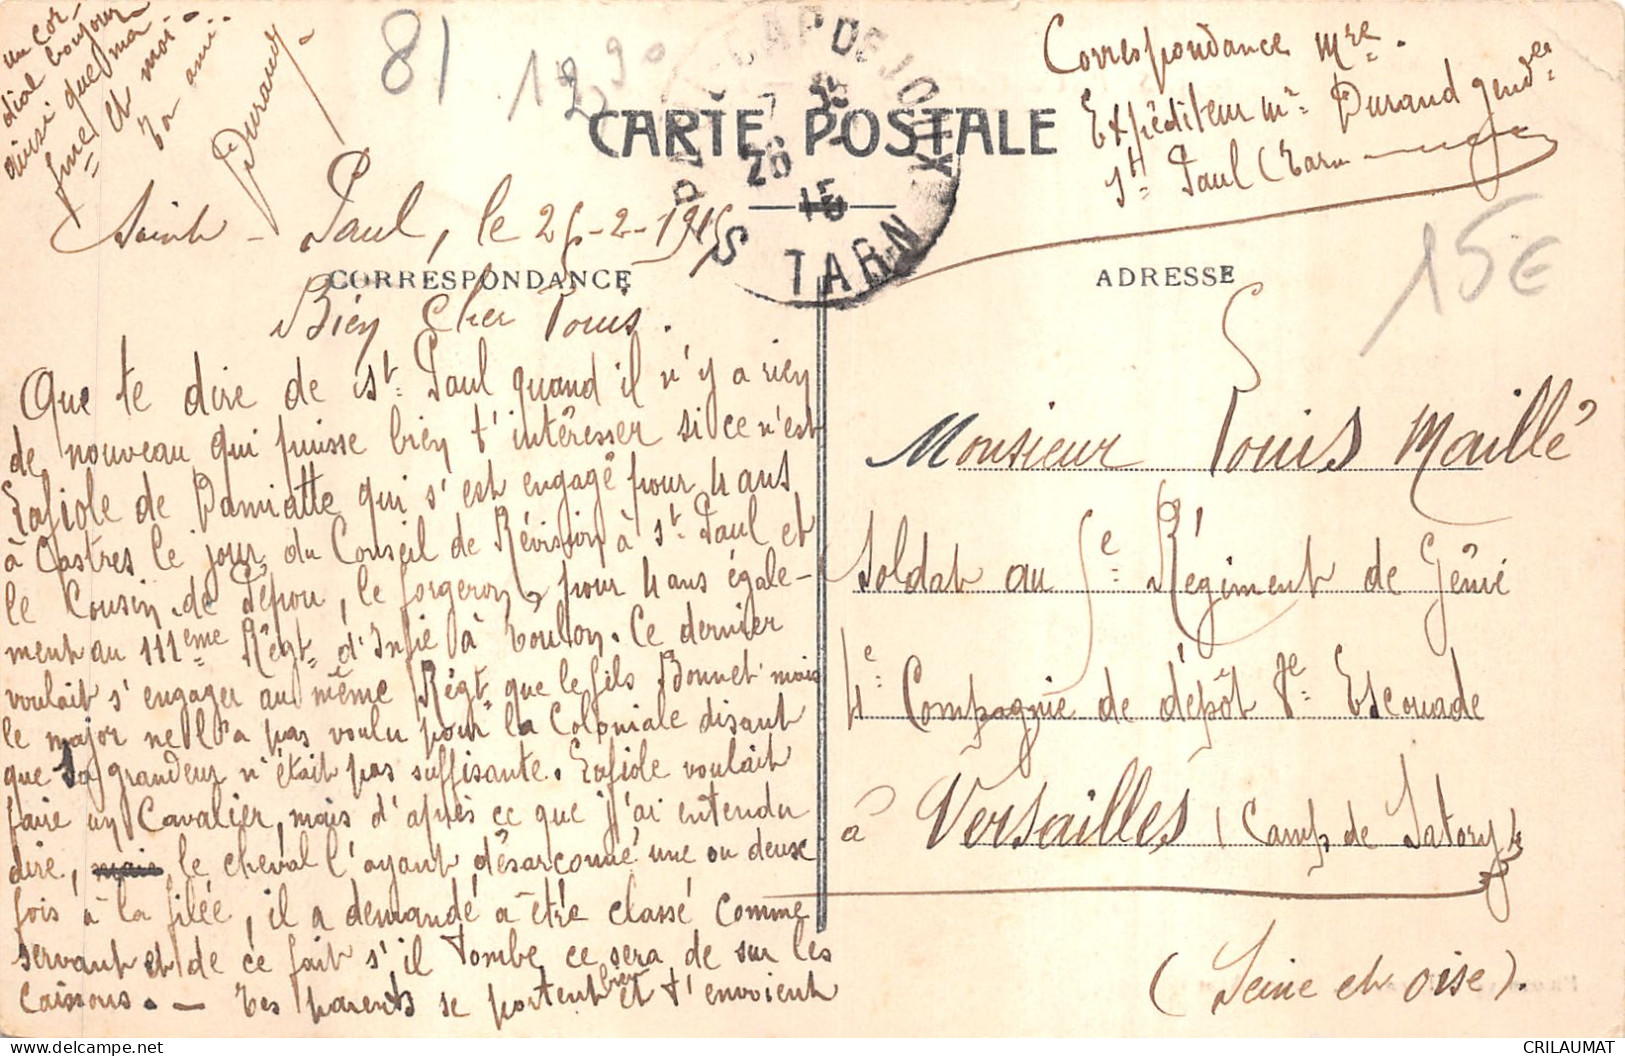 81
1290
CARTE POSTALE
ST PAUL CAP DE JOUX
26
15
TARN
Correspondance Mre.
Expéditeur Mr Durand gendre
St Paul (Tarn
15€
Saint-Paul, le 25-2-1915
CORRESPONDANCE
ADRESSE
Bien Cher Louis.
Que te dire de St. Paul quand il n'y a rien
de nouveau qui puisse bien t'intéresser si ce n'est
Lafiole de Damiatte qui s'est engagé pour 4 ans
à Castres le jour du Conseil de Révision à St. Paul et
le Cousin de Pépou, le forgeron, pour 4 ans égale-
ment au 111ème Régt. d'Infie à Toulon. Ce dernier
voulait s'engager au même Régt. que le fils Bonnet mais
le major ne l'a pas voulu pour la Coloniale disant
que sa grandeur n'était pas suffisante. Lafiole voulait
faire un Cavalier, mais d'après ce que j'ai entendu
dire, mais le cheval l'ayant désarconné une ou deux
fois à la filée, il a demandé à être classé comme
servant et de ce fait s'il tombe ce sera de sur les
caissons. - Tes parents se portent bien et t'envoient
un cor-
dial bonjour
ainsi que ma
fme et moi.
Ton ami.
Durand
Monsieur Louis Maillé
Soldat au 5e Régiment de Génie
4e Compagnie de dépôt 8e Escouade
à Versailles (Camp de Satory)
(Seine et Oise).
CRILAUMAT